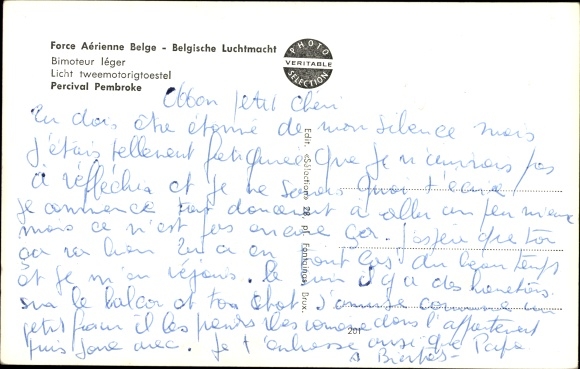 Force Aérienne Belge - Belgische Luchtmacht
Bimoteur léger
Licht tweemotorigtoestel
Percival Pembroke
PHOTO
VERITABLE
SELECTION
Mon petit chéri
Tu dois être étonné de mon silence mais
j'étais tellement fatiguée que je n'arrivais pas
à réfléchir et je ne savais quoi t'écrire
je commence tout doucement à aller un peu mieux
mais ce n'est pas encore ça. J'espère que toi
ça va bien Tu a en tout cas du beau temps
et je m'en réjouis. Le il y a des
sur le balcon et ton chat s'amuse comme un
petit fou il les prends les dans l'appartement
puis joue avec. Je t'embrasse ainsi que Papa
à Bientôt
Edit. «Sélection» 28, pl. Brux.
201